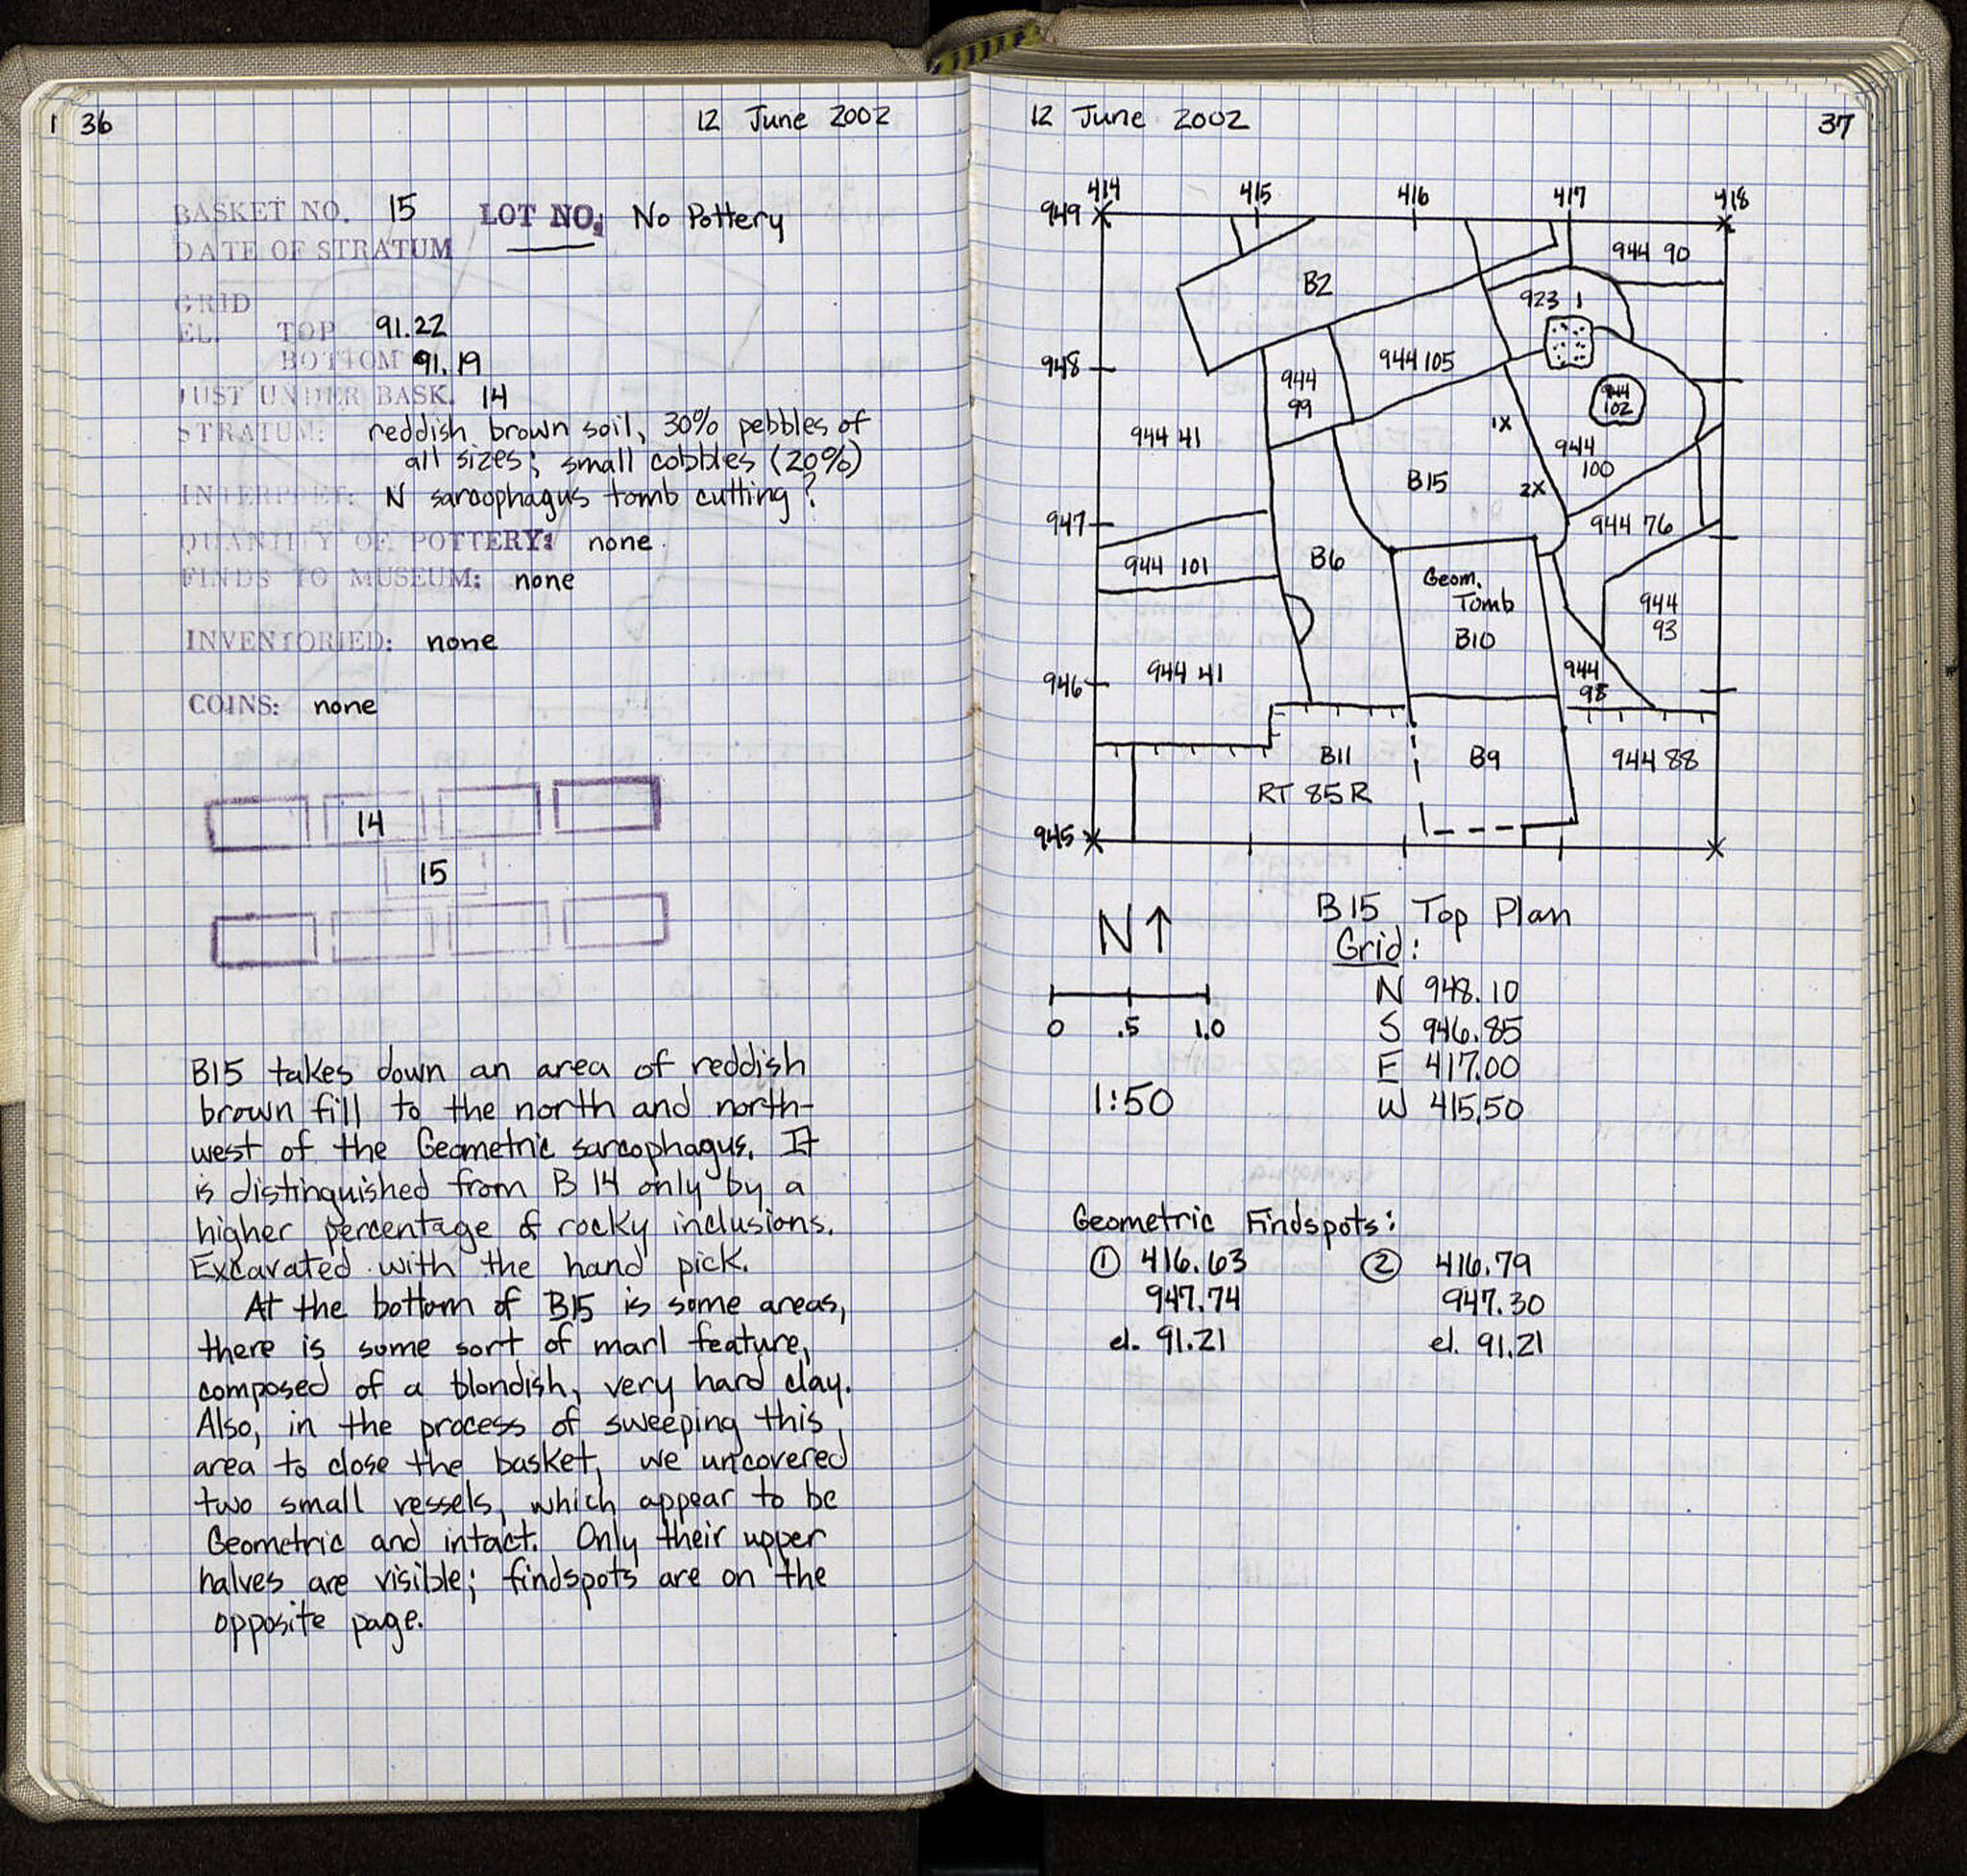 1 36
12 June 2002
BASKET NO. 15 LOT NO. No Pottery
DATE OF STRATUM
GRID
EL. TOP 91.22
BOTTOM 91.19
JUST UNDER BASK. 14
STRATUM: reddish brown soil, 30% pebbles of
all sizes; small cobbles (20%)
INTERPRET: N sarcophagus tomb cutting?
QUANTITY OF POTTERY: none
FINDS TO MUSEUM: none
INVENTORIED: none
COINS: none
14
15
B15 takes down an area of reddish
brown fill to the north and north-
west of the Geometric sarcophagus. It
is distinguished from B 14 only by a
higher percentage of rocky inclusions.
Excavated with the hand pick.
At the bottom of B15 is some areas,
there is some sort of marl feature,
composed of a blondish, very hard clay.
Also, in the process of sweeping this
area to close the basket, we uncovered
two small vessels, which appear to be
Geometric and intact. Only their upper
halves are visible; findspots are on the
opposite page.
12 June 2002
37
414 415 416 417 418
949
944 90
B2
923 1
948
944 105
944
99
944
102
944 41
1X
944
100
B15
2X
947
944 76
944 101
B6
Geom.
Tomb
B10
944
93
946
944 41
944
95
B11
B9
944 88
RT 85 R
945
N↑
B15 Top Plan
Grid:
N 948.10
S 946.85
E 417.00
W 415.50
0 .5 1.0
1:50
Geometric Findspots:
① 416.63 ② 416.79
947.74 947.30
el. 91.21 el. 91.21